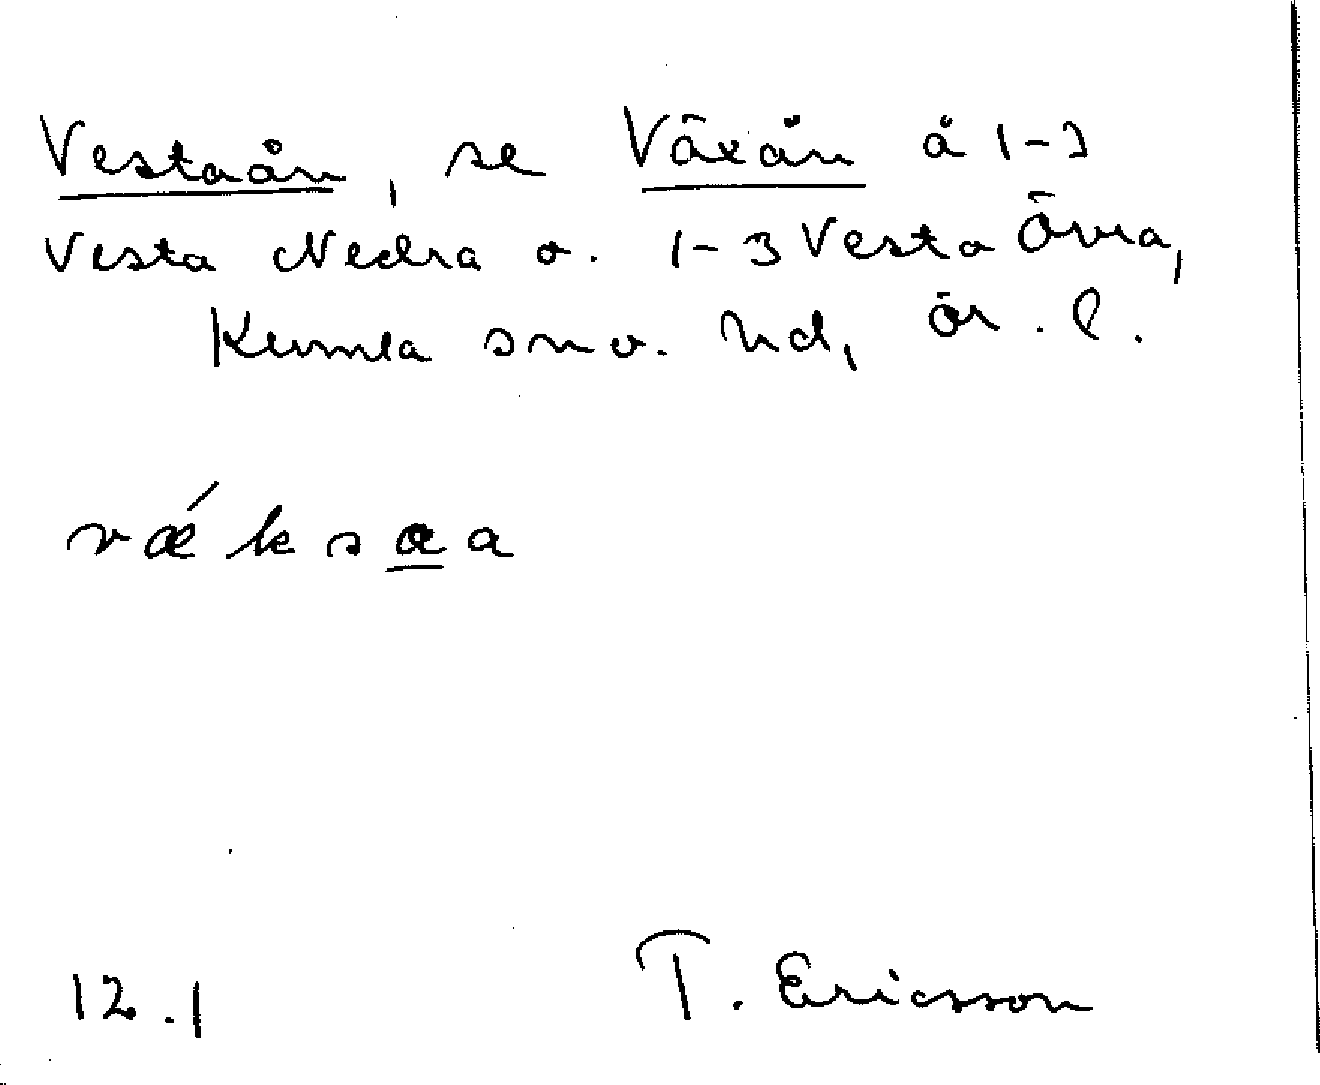 Vestaån, se Växån å 1-3
Vesta Nedra o. 1-3 Vesta Övra,
Kumla sn o. hd, Ör. l.
vǽksaa
12.1 T. Ericsson